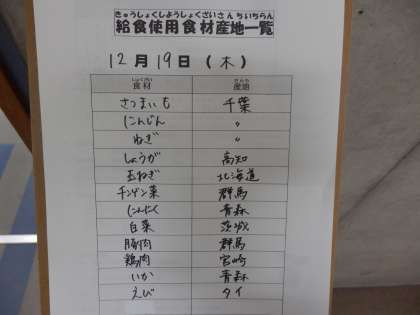 きゅうしょくしようしょくざいさんちいちらん
給食使用食材産地一覧
12月19日(木)
しょくざい さんち
食材 産地
さつまいも 千葉
にんじん 〃
ねぎ 〃
しょうが 高知
玉ねぎ 北海道
チンゲン菜 群馬
にんにく 青森
白菜 茨城
豚肉 群馬
鶏肉 宮崎
いか 青森
えび タイ